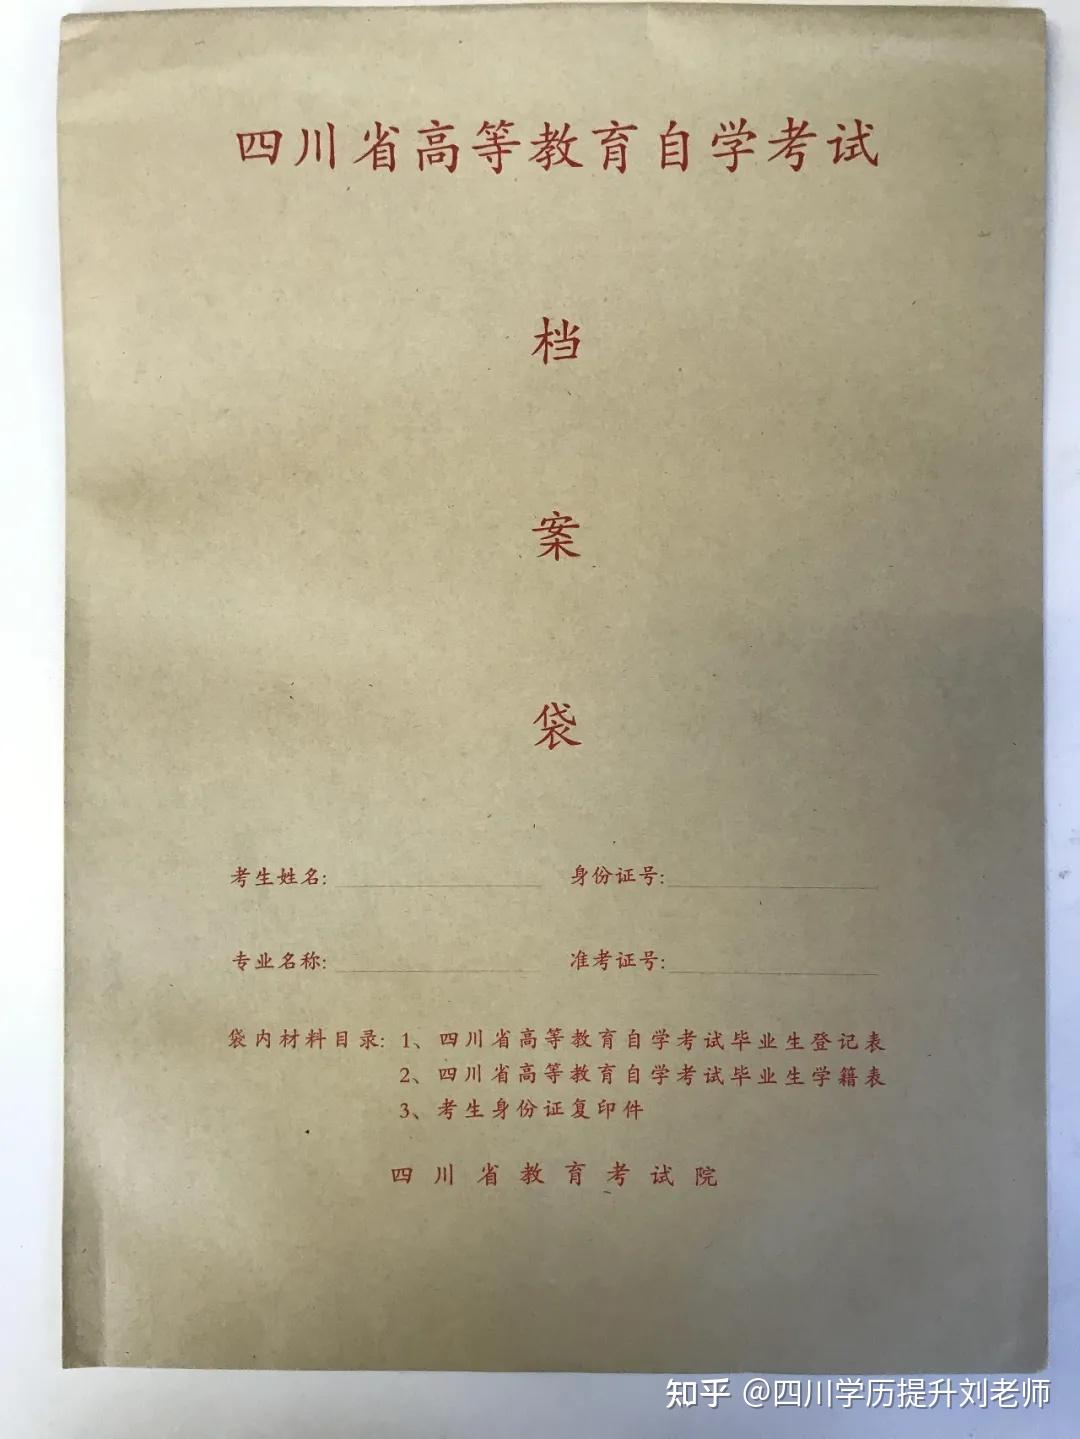 四川省高等教育自学考试
档
案
袋
考生姓名: 身份证号:
专业名称: 准考证号:
袋内材料目录: 1、四川省高等教育自学考试毕业生登记表
2、四川省高等教育自学考试毕业生学籍表
3、考生身份证复印件
四川省教育考试院
知乎 @四川学历提升刘老师